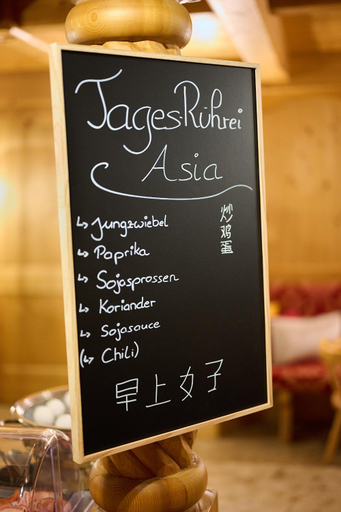 Tages-Rührei
Asia
炒鸡蛋
↳ Jungzwiebel
↳ Paprika
↳ Sojasprossen
↳ Koriander
↳ Sojasouce
(↳ Chili)
早上女子